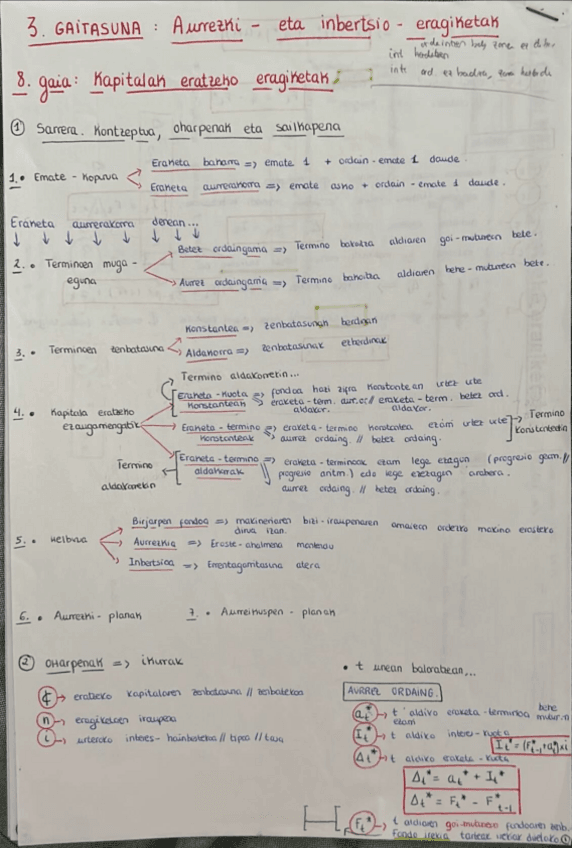 3. GAITASUNA : Aurrezki - eta inbertsio - eragiketak
8. gaia: Kapitalak eratzeko eragiketak
① Sarrera. Kontzeptua, oharpenak eta sailkapena
1. • Emate - kopurua
Eraketa bakarra => emate 1 + ordain - emate 1 daude.
Eraketa aurrerakorra => emate asko + ordain - emate 1 daude.
Eraketa aurrerakorra denean...
2. • Terminoen muga - eguna
Betez ordaingarria => Termino bakoitza aldiaren goi - muturrean bete.
Aurrez ordaingarria => Termino bakoitza aldiaren behe - muturrean bete.
3. • Terminoen zenbatasuna
Konstantea => zenbatasunak berdinak
Aldakorra => zenbatasunak ezberdinak
Termino aldakorrekin...
4. • Kapitala eratzeko ezaugarriengatik
Eraketa - kuota konstanteak => fondoa hazi zifra konstantean urtez urte
eraketa - term. aur. or. // eraketa - term. betez ord.
aldakor. aldakor.
Eraketa - termino konstanteak => eraketa - termino konstantea ezarri urtez urte
aurrez ordaing. // betez ordaing.
→ Termino konstanteekin
Eraketa - termino aldakorrak => eraketa - terminoak ezarri lege ezagun (progresio geom. //
progresio aritm.) edo lege ezezagun arabera.
aurrez ordaing. // betez ordaing.
Termino aldakorrekin
5. • Helburua
Birjarpen fondoa => makineriaren bizi - iraupenaren amaieran ordezko makina erosteko
dirua izan.
Aurrezkia => Eroste - ahalmena mantendu
Inbertsioa => Errentagarritasuna atera
6. • Aurrezki - planak 7. • Aurreikuspen - planak
② OHARPENAK => ikurrak
→ eratzeko kapitalaren zenbatasuna // zenbatekoa
n → eragiketaren iraupena
i → urteroko interes - hainbatekoa // tipoa // tasa
• t unean baloratzean,...
AURREZ ORDAING.
at* → t aldiko eraketa - terminoa behe mutur.n
ezarri
It* → t aldiko interes - kuota
It* = (F*t-1 + at*) x i
Δt* → t aldiko eraketa - kuota
Δt* = at* + It*
Δt* = Ft* - F*t-1
Ft* → t aldiaren goi - muturreko fondoaren zenb.